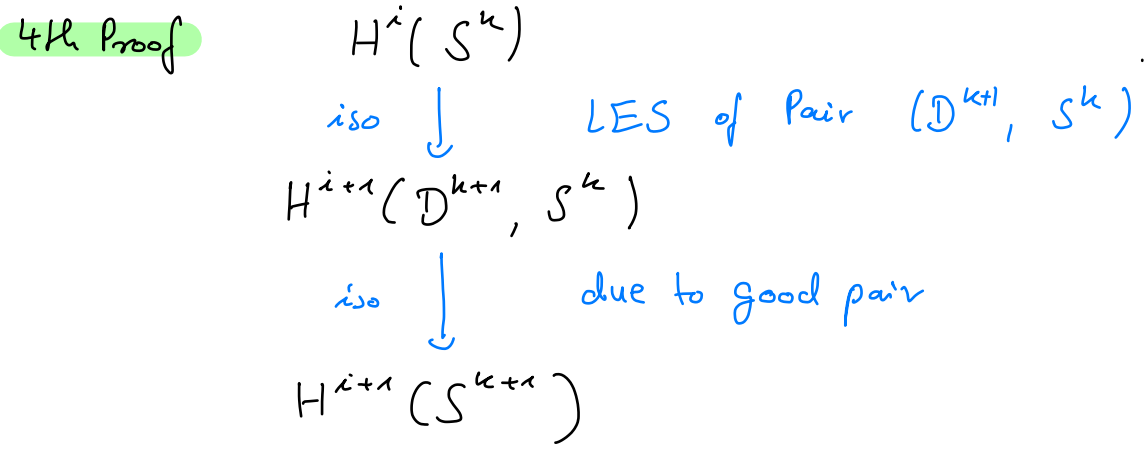 4th Proof H^i(S^k)
iso ↓ LES of Pair (D^{k+1}, S^k)
H^{i+1}(D^{k+1}, S^k)
iso ↓ due to good pair
H^{i+1}(S^{k+1})